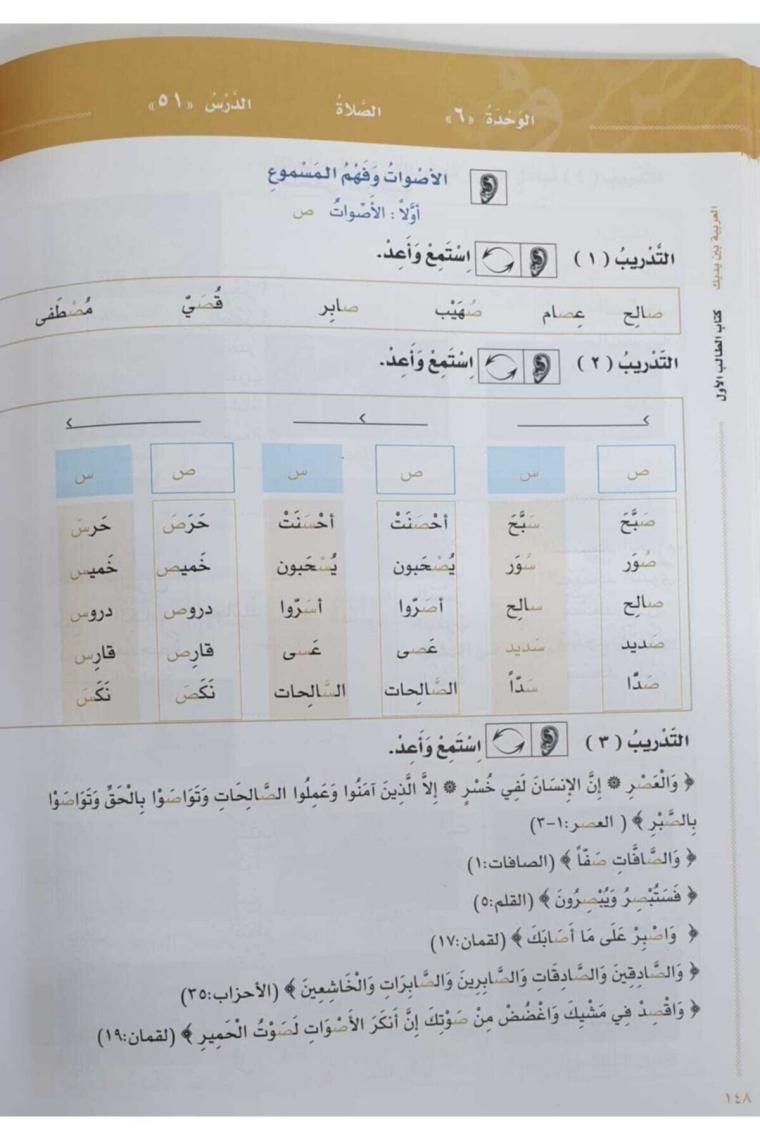 الوَحْدَةُ «٦» الصَّلاةُ الدَّرْسُ «٥١»
الأَصْواتُ وَفَهْمُ المَسْموعِ
أَوَّلاً : الأَصْواتُ ص
التَّدْريبُ ( ١ ) اِسْتَمِعْ وَأَعِدْ.
صالِح عِصام صُهَيْب صابِر قُصَيّ مُصْطَفى
التَّدْريبُ ( ٢ ) اِسْتَمِعْ وَأَعِدْ.
ص س ص س ص س
صَبَّحَ سَبَّحَ أحْصَنَتْ أحْسَنَتْ حَرَصَ حَرسَ
صُوَر سُوَر يُصْحَبون يُسْحَبون خَميص خَميس
صالِح سالِح أصَرّوا أسَرّوا دروص دروس
صَديد سَديد عَصى عَسى قارِص قارِس
صَدّا سَدّاً الصَّالِحات السَّالِحات نَكَصَ نَكَسَ
التَّدْريبُ ( ٣ ) اِسْتَمِعْ وَأَعِدْ.
﴿ وَالْعَصْرِ ۞ إِنَّ الإِنْسَانَ لَفِي خُسْرٍ ۞ إِلاَّ الَّذِينَ آمَنُوا وَعَمِلُوا الصَّالِحَاتِ وَتَوَاصَوْا بِالْحَقِّ وَتَوَاصَوْا
بِالصَّبْرِ ﴾ ( العصر:١-٣)
﴿ وَالصَّافَّاتِ صَفّاً ﴾ (الصافات:١)
﴿ فَسَتُبْصِرُ وَيُبْصِرُونَ ﴾ (القلم:٥)
﴿ وَاصْبِرْ عَلَى مَا أَصَابَكَ ﴾ (لقمان:١٧)
﴿ وَالصَّادِقِينَ وَالصَّادِقَاتِ وَالصَّابِرِينَ وَالصَّابِرَاتِ وَالْخَاشِعِينَ ﴾ (الأحزاب:٣٥)
﴿ وَاقْصِدْ فِي مَشْيِكَ وَاغْضُضْ مِنْ صَوْتِكَ إِنَّ أَنكَرَ الأَصْوَاتِ لَصَوْتُ الْحَمِيرِ ﴾ (لقمان:١٩)
العربية بين يديك كتاب الطالب الأول
١٤٨